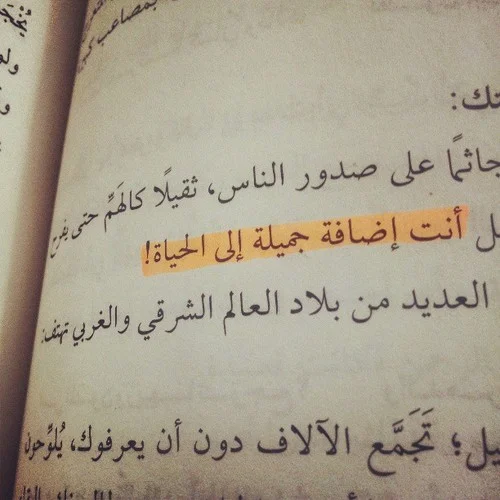 بمصاعب
تك:
جاثمًا على صدور الناس، ثقيلًا كالهَمِّ حتى يفرح
ل أنت إضافة جميلة إلى الحياة!
العديد من بلاد العالم الشرقي والغربي تهتف:
يل؛ تَجَمَّع الآلاف دون أن يعرفوك، يُلوِّحون